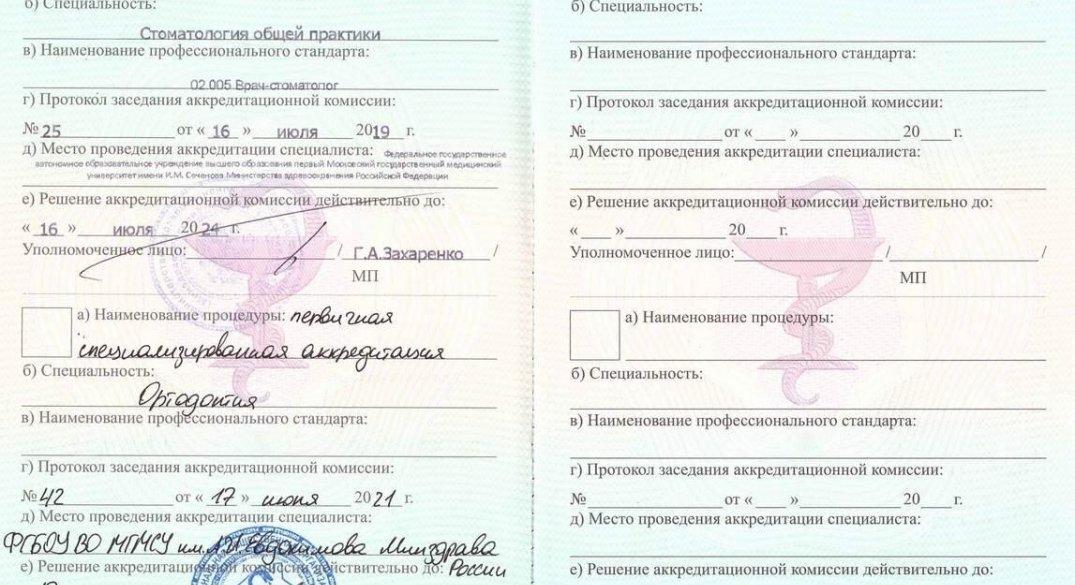 б) Специальность:
Стоматология общей практики
в) Наименование профессионального стандарта:
02.005 Врач-стоматолог
г) Протокол заседания аккредитационной комиссии:
№ 25 от « 16 » июля 2019 г.
д) Место проведения аккредитации специалиста: Федеральное государственное
автономное образовательное учреждение высшего образования первый Московский государственный медицинский
университет имени И.М. Сеченова Министерства здравоохранения Российской Федерации
е) Решение аккредитационной комиссии действительно до:
« 16 » июля 2024 г.
Уполномоченное лицо: / Г.А.Захаренко /
МП
а) Наименование процедуры: первичная
специализированная аккредитация
б) Специальность:
Ортодонтия
в) Наименование профессионального стандарта:
г) Протокол заседания аккредитационной комиссии:
№ 42 от « 17 » июня 2021 г.
д) Место проведения аккредитации специалиста:
ФГБОУ ВО МГМСУ им. А.И. Евдокимова Минздрава
е) Решение аккредитационной комиссии действительно до: России
б) Специальность:
в) Наименование профессионального стандарта:
г) Протокол заседания аккредитационной комиссии:
№ от « » 20 г.
д) Место проведения аккредитации специалиста:
е) Решение аккредитационной комиссии действительно до:
« » 20 г.
Уполномоченное лицо: / /
МП
а) Наименование процедуры:
б) Специальность:
в) Наименование профессионального стандарта:
г) Протокол заседания аккредитационной комиссии:
№ от « » 20 г.
д) Место проведения аккредитации специалиста:
е) Решение аккредитационной комиссии действительно до: